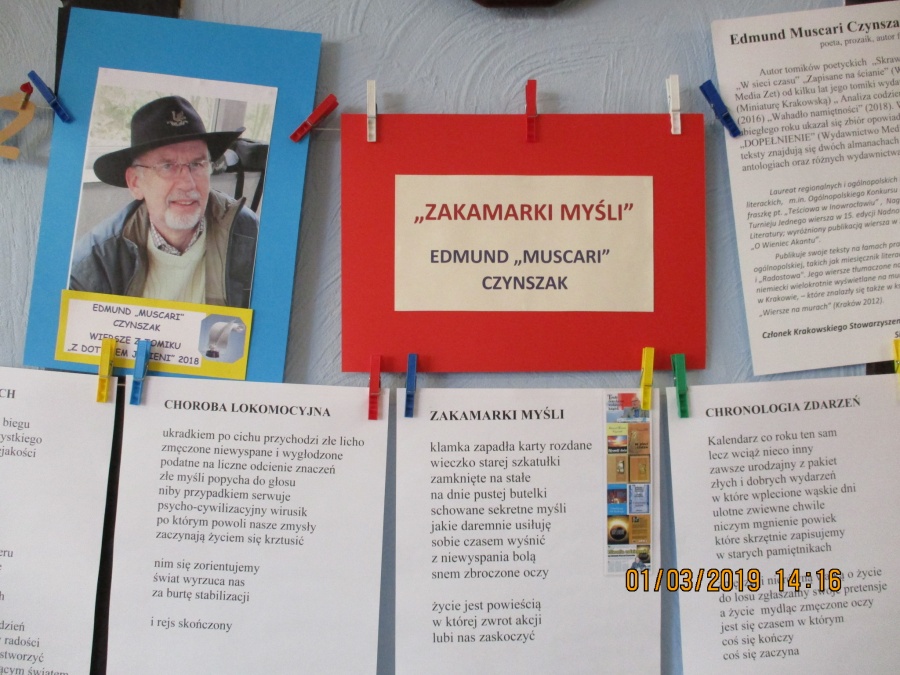 EDMUND „MUSCARI”
CZYNSZAK
WIERSZE Z TOMIKU
„Z DOTYKIEM JESIENI” 2018
„ZAKAMARKI MYŚLI”
EDMUND „MUSCARI”
CZYNSZAK
Edmund Muscari
poeta, prozaik, autor
Autor tomików poetyckich
„W sieci czasu” „Zapisane na ścianie”
Media Zet) od kilku lat jego tomiki
(Miniaturę Krakowską) „ Analiza
(2016) „Wahadło namiętności” (2018).
ubiegłego roku ukazał się zbiór
„DOPEŁNIENIE” (Wydawnictwo
teksty znajdują się dwóch almanachach
antologiach oraz różnych
Laureat regionalnych i ogólnopolskich
literackich, m.in. Ogólnopolskiego Konkursu
fraszkę pt. „Teściowa w Inowrocławiu” ,
Turnieju Jednego wiersza w 15. edycji
Literatury; wyróżniony publikacją wiersza w
„O Wieniec Akantu”.
Publikuje swoje teksty na łamach
ogólnopolskiej, takich jak miesięcznik
i „Radostowa”. Jego wiersze tłumaczone
niemiecki wielokrotnie wyświetlane na
w Krakowie, – które znalazły się także w
„Wiersze na murach” (Kraków 2012).
Członek Krakowskiego
biegu
CHOROBA LOKOMOCYJNA
ukradkiem po cichu przychodzi złe licho
zmęczone niewyspane i wygłodzone
podatne na liczne odcienie znaczeń
złe myśli popycha do głosu
niby przypadkiem serwuje
psycho-cywilizacyjny wirusik
po którym powoli nasze zmysły
zaczynają życiem się krztusić
nim się zorientujemy
świat wyrzuca nas
za burtę stabilizacji
i rejs skończony
ZAKAMARKI MYŚLI
klamka zapadła karty rozdane
wieczko starej szkatułki
zamknięte na stałe
na dnie pustej butelki
schowane sekretne myśli
jakie daremnie usiłuję
sobie czasem wyśnić
z niewyspania bolą
snem zbroczone oczy
życie jest powieścią
w której zwrot akcji
lubi nas zaskoczyć
CHRONOLOGIA ZDARZEŃ
Kalendarz co roku ten sam
lecz wciąż nieco inny
zawsze urodzajny z pakiet
złych i dobrych wydarzeń
w które wplecione wąskie dni
ulotne zwiewne chwile
niczym mgnienie powiek
które skrzętnie zapisujemy
w starych pamiętnikach
o życie
do losu zgłaszamy swoje pretensje
a życie mydląc zmęczone oczy
jest się czasem w którym
coś się kończy
coś się zaczyna
01/03/2019 14:16